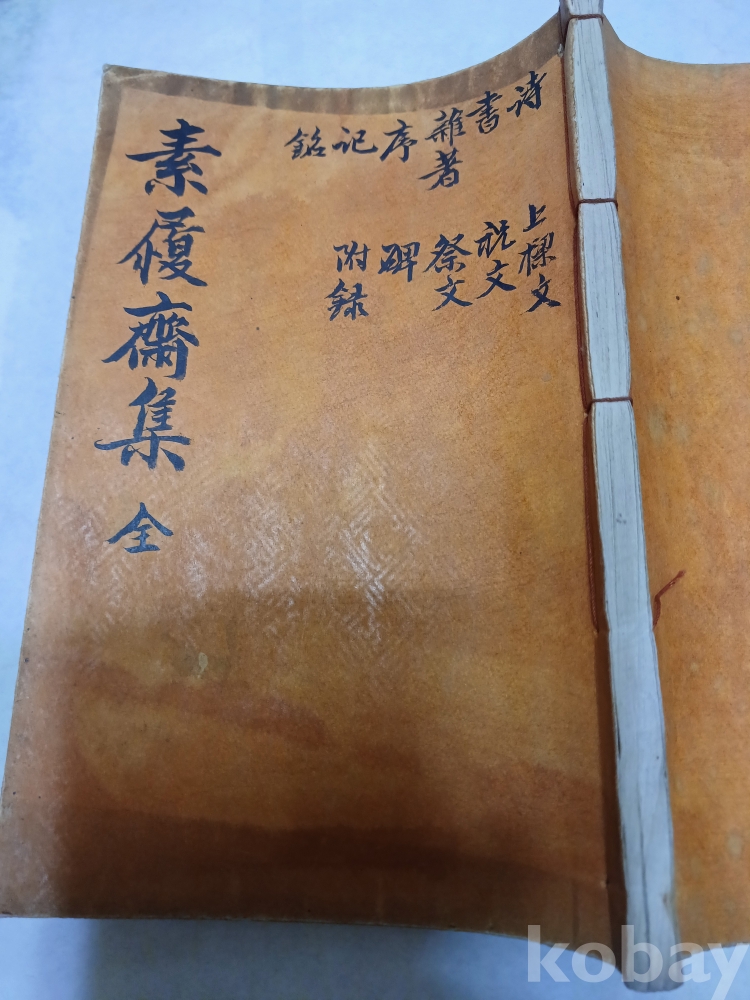 素履齋集 全
詩
書
雜著
序
記
銘
上樑文
祝文
祭文
碑
附録
kobay